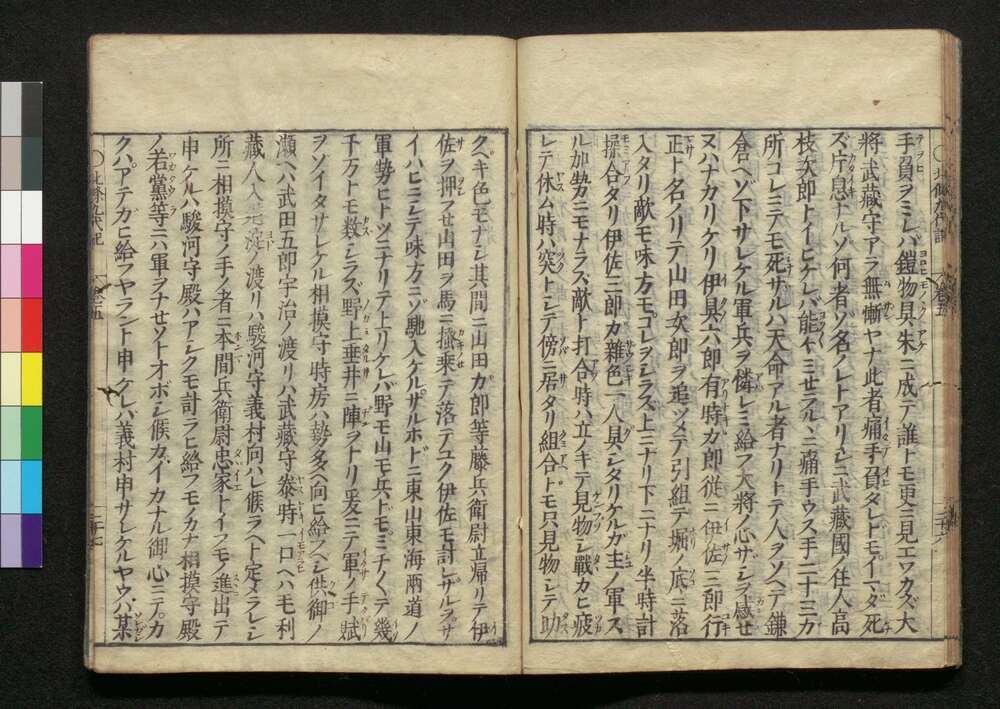 手負ヲミレバ鎧物具朱ニ成テ誰トモ更ニ見エワカズ大
将武藏守アラ無慚ヤナ此者痛手負タレドモイマダ死
ズ片息ナルゾ何者ゾ名ノレトアリシニ武藏國ノ住人高
枝次郎トイヒケレバ能々ミセラルヽニ痛手ウス手二十三カ
所コレニテモ死ザルハ天命アル者ナリトテ人ヲソヘテ鎌
倉ヘゾ下サレケル軍兵ヲ憐レミ給フ大將ノ心ザシヲ感セ
ヌハナカリケリ伊具六郎有時カ郎従ニ伊佐三郎行
正ト名ノリテ山田次郎ヲ追ツメテ引組テ堀ノ底ニ落
入タリ敵モ味方モコレヲシラス上ニナリ下ニナリ半時計
揉合タリ伊佐三郎カ雜色一人具シタリケルガ主ノ軍ス
ル加勢ニモナラズ敵ト打合時ハ立ノキテ見物シ戰カヒ疲
レテ休ム時ハ突トシテ傍ニ居タリ組合トモ只見物シテ助
クベキ色モナシ其間ニ山田カ郎等藤兵衛尉立帰リテ伊
佐ヲ押フせ山田ヲ馬ニ掻乘テ落テユク伊佐モ計レケルヲザ
イハヒニシテ味方ニゾ馳入ケルサルホドニ東山東海兩道ノ
軍勢ヒトツニナリテ上リケレバ野モ山モ兵トモミチ〱テ幾
千万トモ数シラズ野上垂井ニ陣ヲトリ爰ニテ軍ノ手賦
ヲソイタサレケル相摸守時房ハ勢多ヘ向ヒ給ヘシ供御ノ
瀬ヘハ武田五郎宇治ノ渡リハ武藏守泰時一口ヘハ毛利
藏人入道淀ノ渡リハ駿河守義村向ハレ候ヘト定メラレシ
所ニ相摸守ノ手ノ者ニ本間兵衛尉忠家トイフモノ進出テ
申ケルハ駿河守殿ハアシクモ計ラヒ給フモノカナ相摸守殿
ノ若黨等ニハ軍ヲナせソトオボシ候カイカナル御心ニテカ
クハアテカヒ給フヤラント申ケレバ義村申サレケルヤウハ某